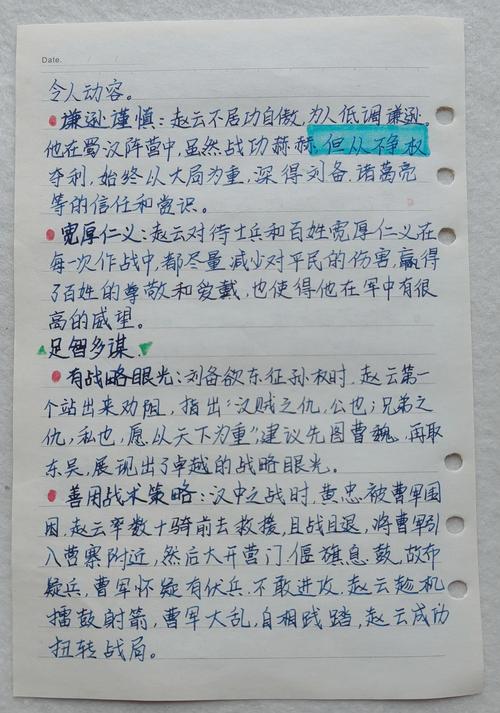 Date.
令人动容。
谦逊谨慎：赵云不居功自傲，为人低调谦逊。
他在蜀汉阵营中，虽然战功赫赫，但从不争权
夺利，始终从大局为重，深得刘备、诸葛亮
等的信任和赏识。
宽厚仁义：赵云对待士兵和百姓宽厚仁义在
每一次作战中，都尽量减少对平民的伤害，赢得
了百姓的尊敬和爱戴，也使得他在军中有很
高的威望。
足智多谋
有战略眼光：刘备欲东征孙权时，赵云第一
个站出来劝阻，指出“汉贼之仇，公也；兄弟之
仇，私也，愿从天下为重”，建议先图曹魏，再取
东吴，展现出了卓越的战略眼光。
善用战术策略：汉中之战时，黄忠被曹军围
困，赵云率数十骑前去救援，且战且退，将曹军引
入营寨附近，然后大开营门，偃旗息鼓，故布
疑兵，曹军怀疑有伏兵，不敢进攻，赵云趁机
擂鼓射箭，曹军大乱，自相践踏，赵云成功
扭转战局。